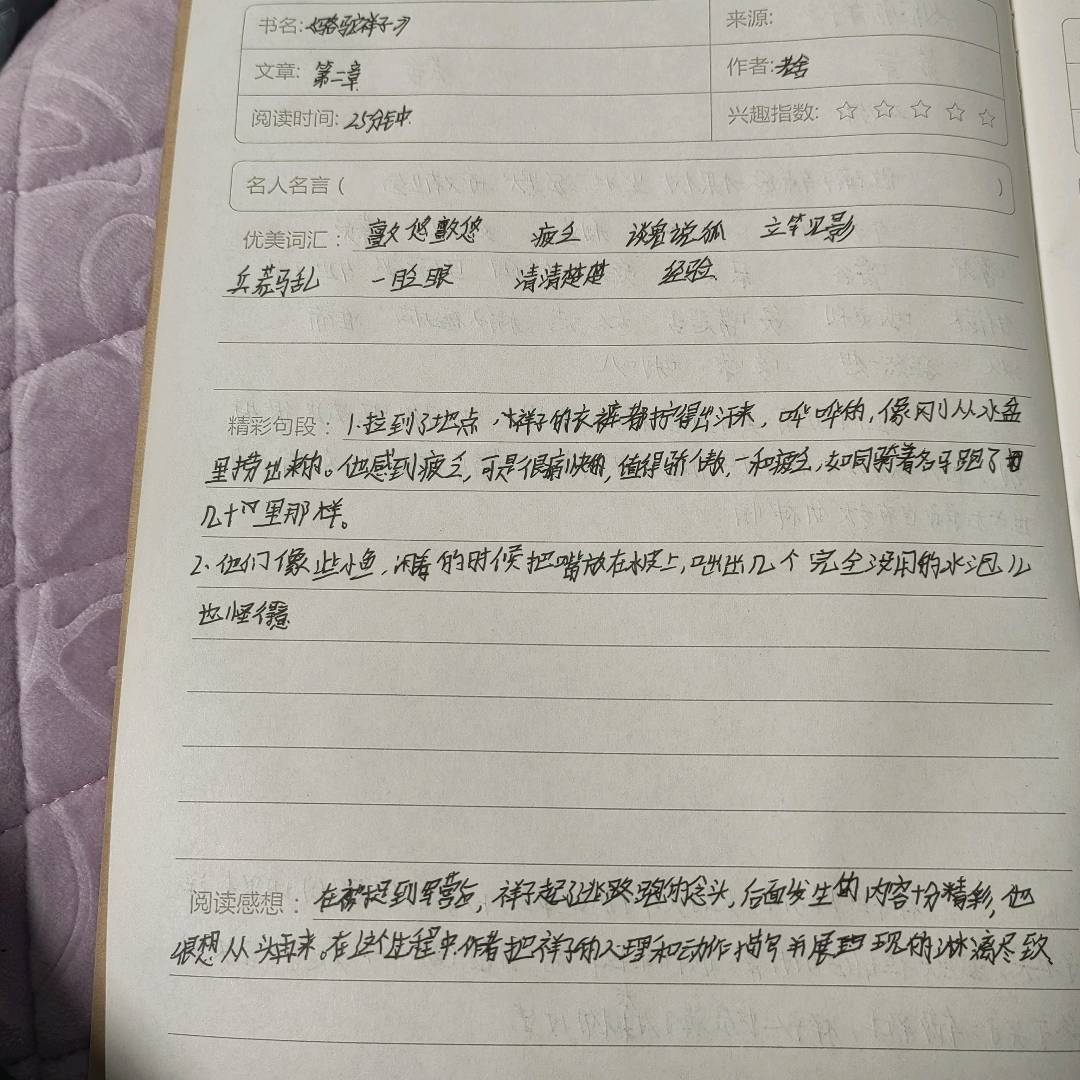 书名:《骆驼祥子》 来源:
文章: 第二章 作者: 老舍
阅读时间: 25分钟 兴趣指数: ☆ ☆ ☆ ☆ ☆
名人名言 ( )
优美词汇： 颤悠颤悠 疲乏 谈鬼说狐 立竿见影
兵荒马乱 一眨眼 清清楚楚 经验
精彩句段： 1.拉到了地点，祥子的衣裤都拧得出汗来，哗哗的，像刚从水盆
里捞出来的。他感到疲乏，可是很痛快的，值得骄傲，一种疲乏，如同骑着名马跑了
几十里那样。
2.他们像些小鱼，闲着的时候把嘴放在水皮上，吐出几个完全没用的水泡儿
也怪得意
阅读感想： 在被捉到军营后，祥子起了逃跑的念头，后面发生的内容十分精彩，他
很想从头再来。在这个过程中，作者把祥子的心理和动作描写并展现的淋漓尽致